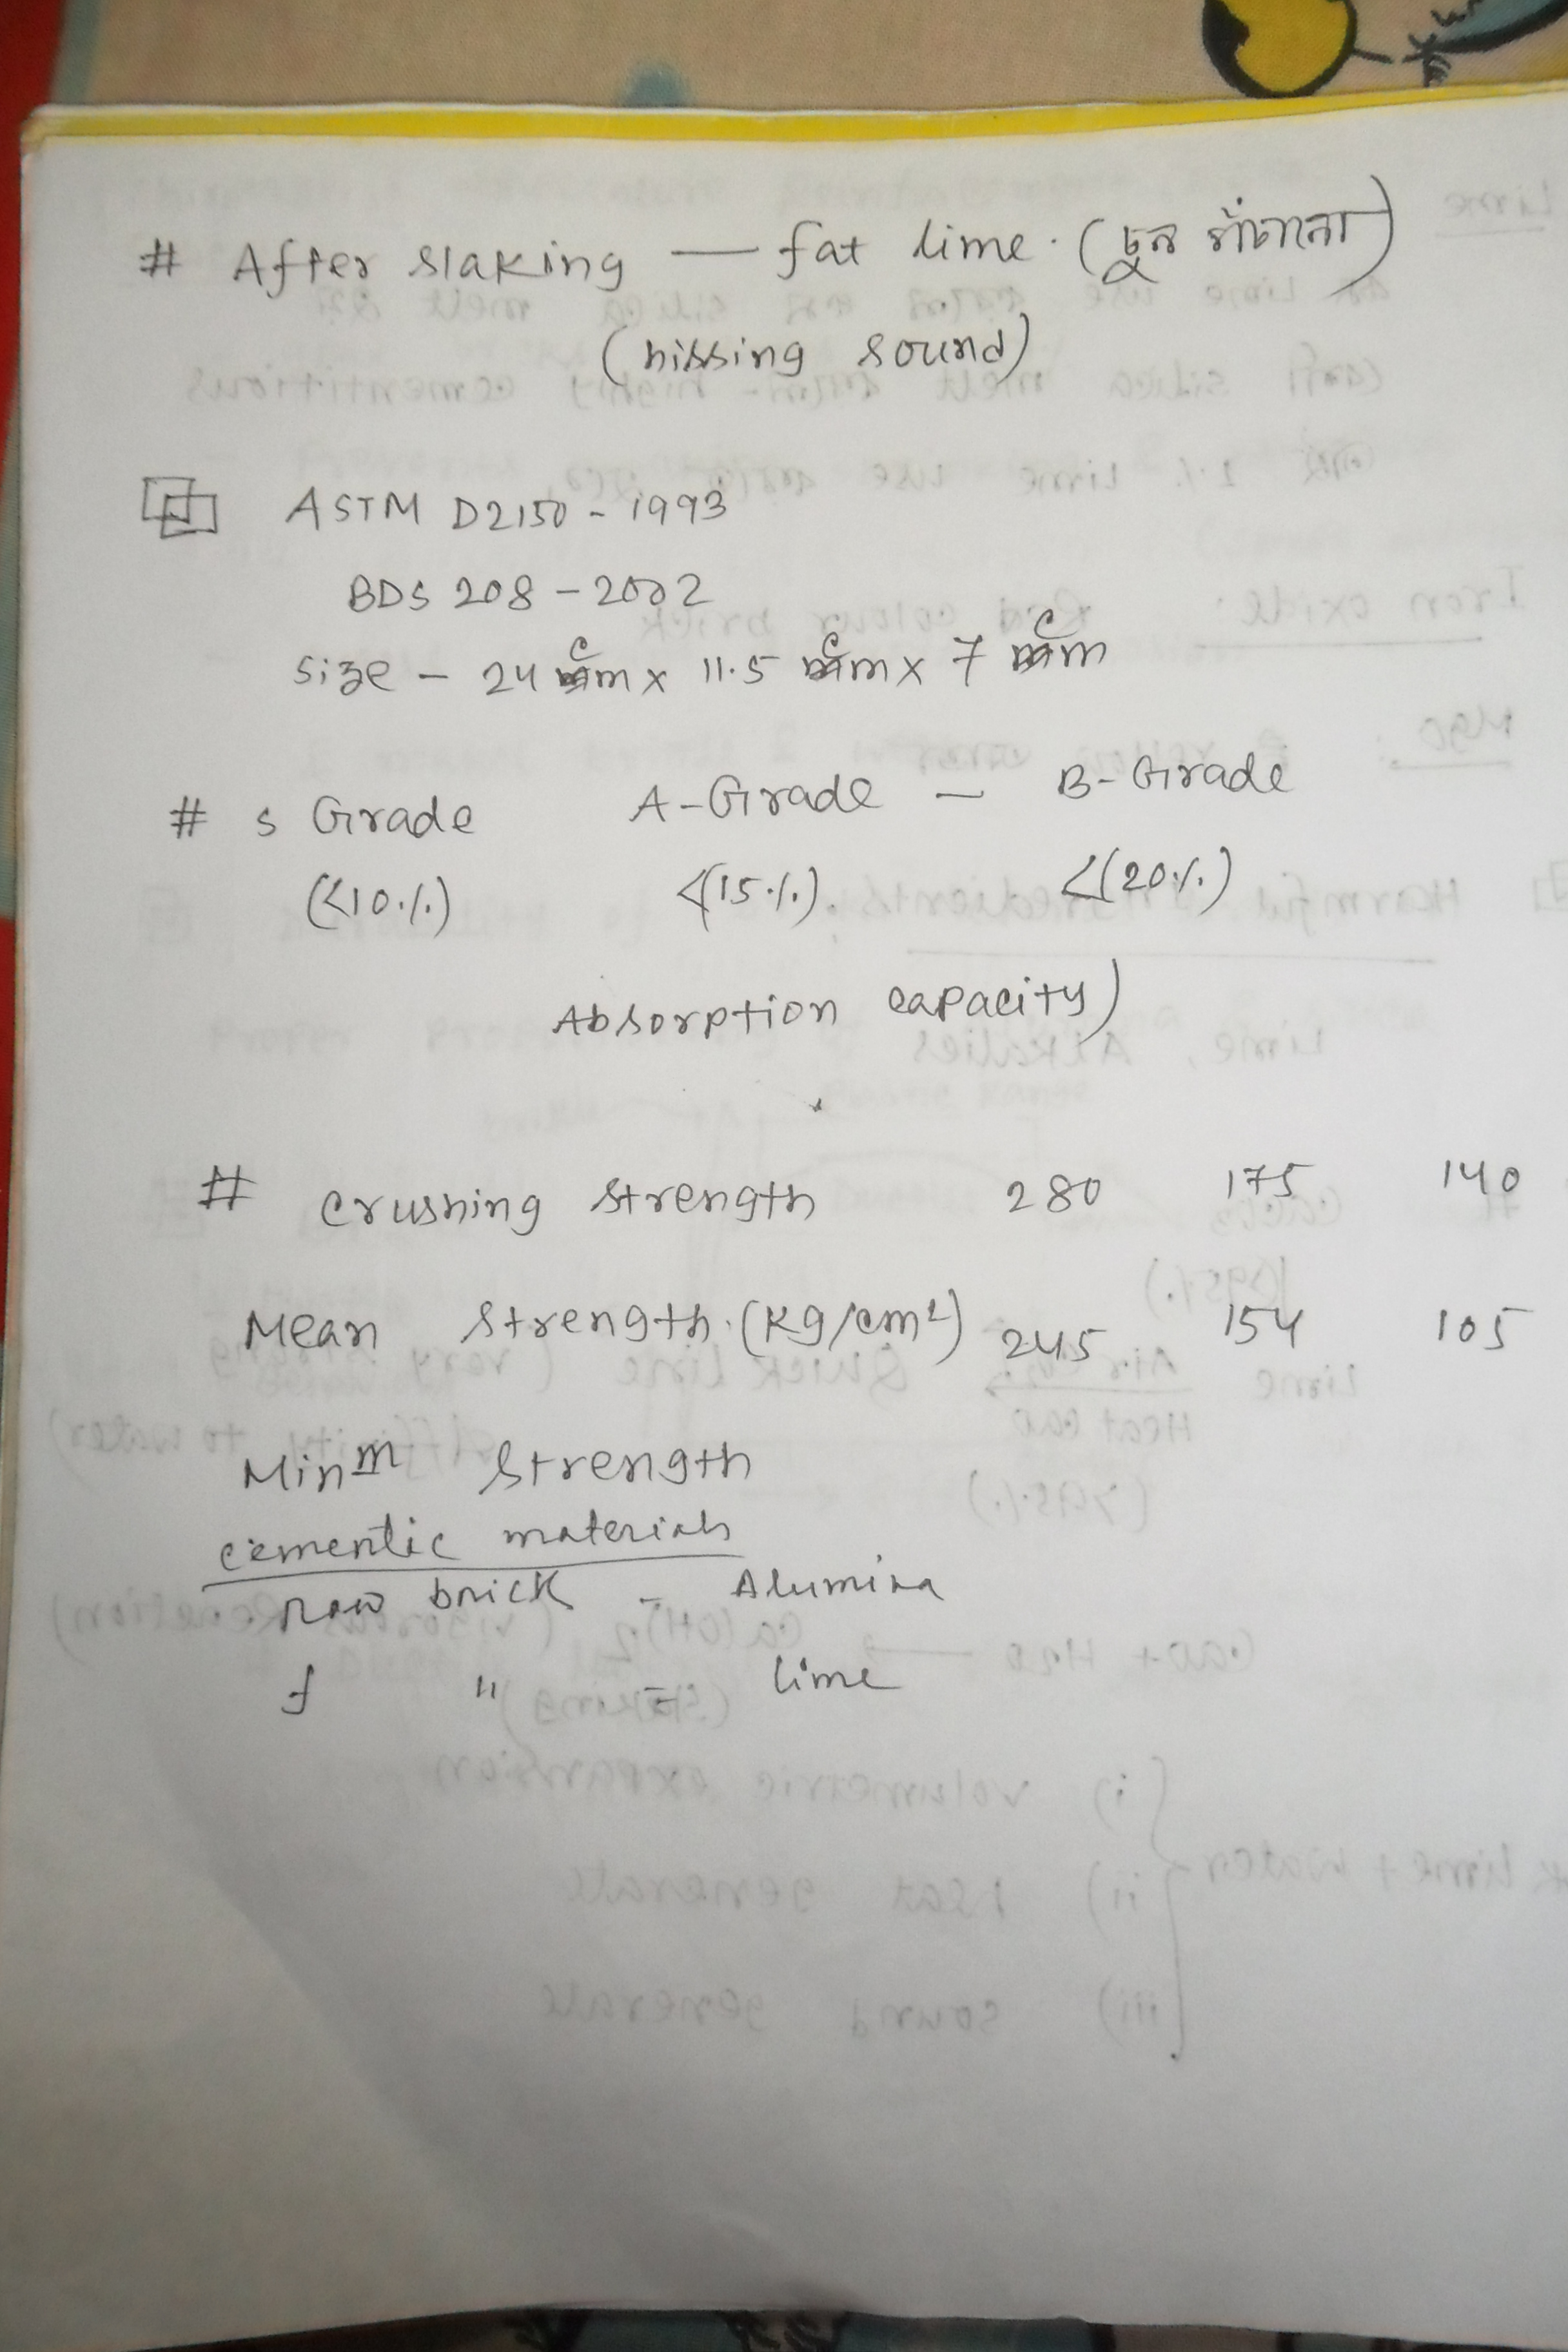 # After slaking — fat lime. (চুন ফাঁটানো)
(hissing sound)
ASTM D2150 - 1993
BDS 208 - 2002
size - 24 cm x 11.5 cm x 7 cm
# s Grade A-Grade - B-Grade
(<10%) <(15%). <(20%)
Absorption capacity)
# crushing strength 280 175 140
Mean strength (kg/cm²) 245 154 105
Minm strength
cementic materials
Raw brick - Alumina
f " - lime